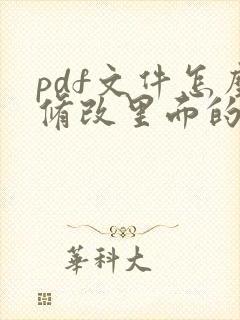 pdf文件怎麼
脩改里而的
華科大